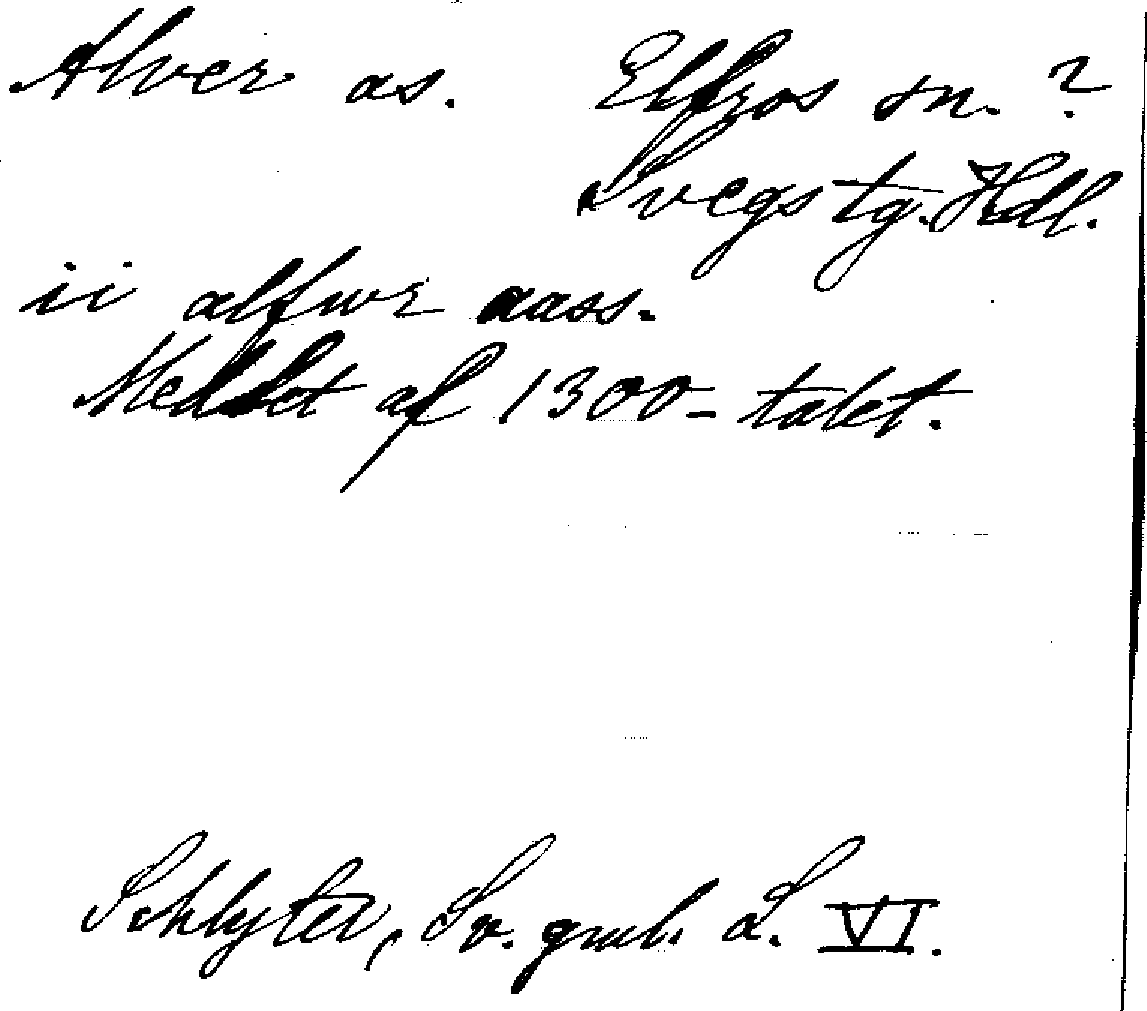 Alver ås. Elfros sn. ?
Svegs tg. Hdl.
ii alfwr aass.
Medlet af 1300-talet.
Schlyter, Sv. gml. L. VI.